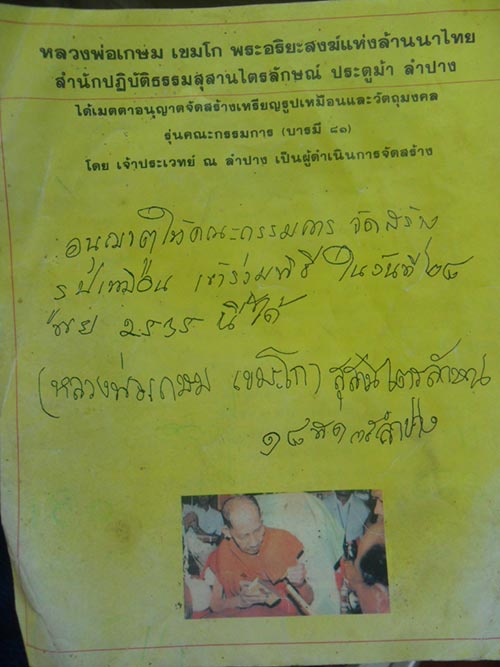 หลวงพ่อเกษม เขมโก พระอริยะสงฆ์แห่งล้านนาไทย
สำนักปฏิบัติธรรมสุสานไตรลักษณ์ ประตูม้า ลำปาง
ได้เมตตาอนุญาตจัดสร้างเหรียญรูปเหมือนและวัตถุมงคล
รุ่นคณะกรรมการ (บารมี ๘๑)
โดย เจ้าประเวทย์ ณ ลำปาง เป็นผู้ดำเนินการจัดสร้าง
ให้คณะกรรมการ จัดสร้าง
รูปเหมือน เข้าร่วมพิธี ในวันที่ ๒๘
พย ๒๕๓๕ นี้ได้
(หลวงพ่อเกษม เขมโก)
ลำปาง